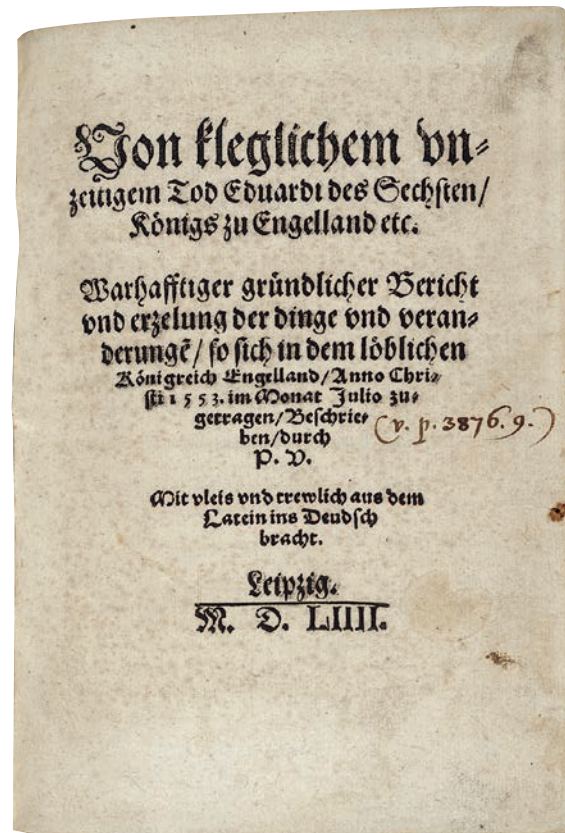 Von kleglichem vn⸗
zeitigem Tod Eduardi des Sechsten/
Königs zu Engelland etc.
Warhafftiger gründlicher Bericht
vnd erzelung der dinge vnd veran⸗
derungẽ/ so sich in dem löblichen
Königreich Engelland/Anno Chri⸗
sti 1553. im Monat Julio zu⸗
getragen/Beschrie⸗
ben/durch (v. p. 3876. 9.)
P. V.
Mit vleis vnd trewlich aus dem
Latein ins Deudsch
bracht.
Leipzig.
M. D. LIIII.